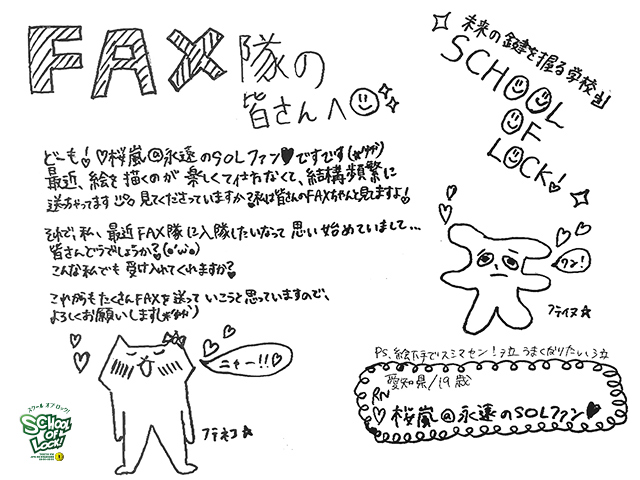 FAX隊の
皆さんへ
未来の鍵を握る学校!
SCHOOL
OF
LOCK!
どーも!♡桜嵐@永遠のSOLファン♥ですです
最近、絵を描くのが楽しくて仕方なくて、結構頻繁に
送っちゃってます 見てくださっていますか?私は皆さんのFAXちゃんと見てますよ!
それで、私、最近FAX隊に入隊したいなって思い始めていまして…
皆さんどうでしょうか?(o'ω'o)
こんな私でも受け入れてくれますか?
これからもたくさんFAXを送っていこうと思っていますので、
よろしくお願いします
ワン!
フテイヌ☆
ニャー!!♡
フテネコ☆
P.S. 絵下手でスミマセン!泣 うまくなりたい泣
愛知県/19歳
RN
♡桜嵐@永遠のSOLファン♥
スクール オブ ロック!
SCHOOL
OF
LOCK!